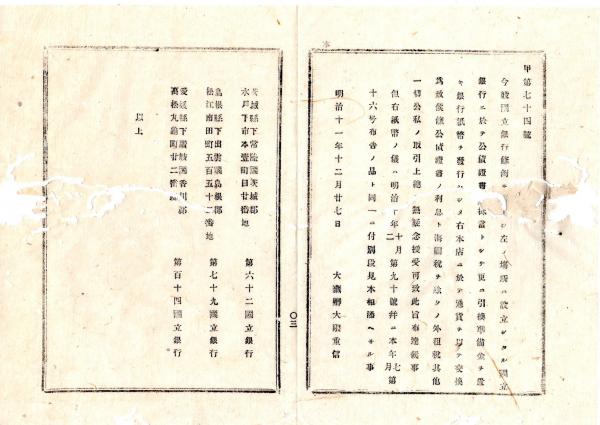 甲第七十四號
今般國立銀行條例ヲ 左ノ場所ニ設立シタル國立
銀行ニ於テ公債證書ヲ抵當トシテ更ニ引換準備金ヲ置
キ銀行紙幣ヲ發行 右本店ニ於テ通貨ヲ以テ交換
爲致候條公債證書ノ利息ト海關稅ヲ除クノ外租稅其他
一切公私ノ取引上總テ無疑念授受可致此旨布達候事
但右紙幣ノ儀ハ明治十年十二月第九十號幷ニ本年七月第
十六號布告ノ品ト同一ニ付別段見本相添ヘサル事
明治十一年十二月廿七日
大藏卿大隈重信
〇三
茨城縣下常陸國茨城郡
水戶下市本壹町目廿番地
第六十二國立銀行
島根縣下出雲國島根郡
松江南田町五百五十二番地
第七十九國立銀行
愛媛縣下讚岐國香川郡
高松丸龜町廿二番地
第百十四國立銀行
以上